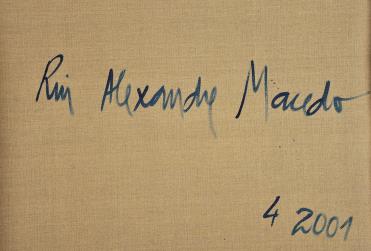 Rui Alexandre Macedo
4 2001